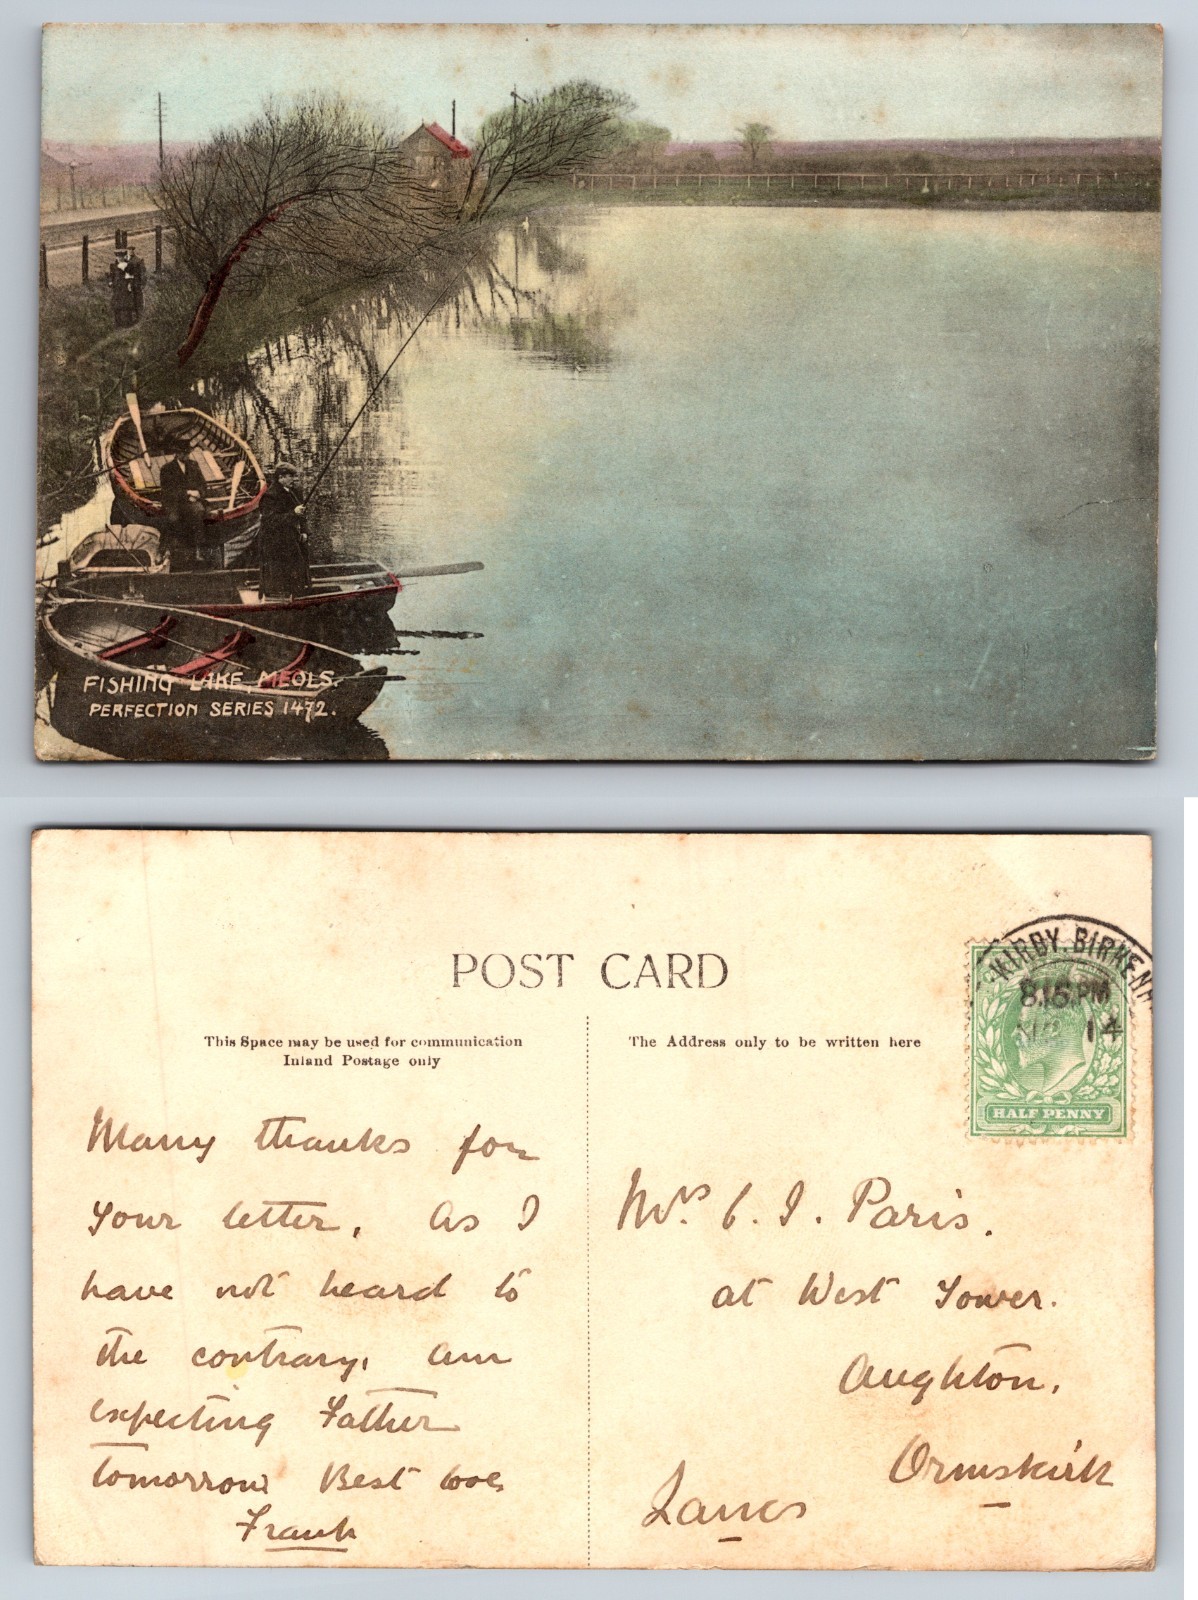 FISHING LAKE, MEOLS.
PERFECTION SERIES 1472.
POST CARD
This Space may be used for communication
Inland Postage only
The Address only to be written here
KIRBY. BIRKENH
8.15 PM
14
HALF PENNY
Many thanks for
your letter. As I
have not heard to
the contrary, am
expecting Father
tomorrow Best love
Frank
Mrs. C. I. Paris.
at West Tower.
Aughton.
Ormskirk
Lancs